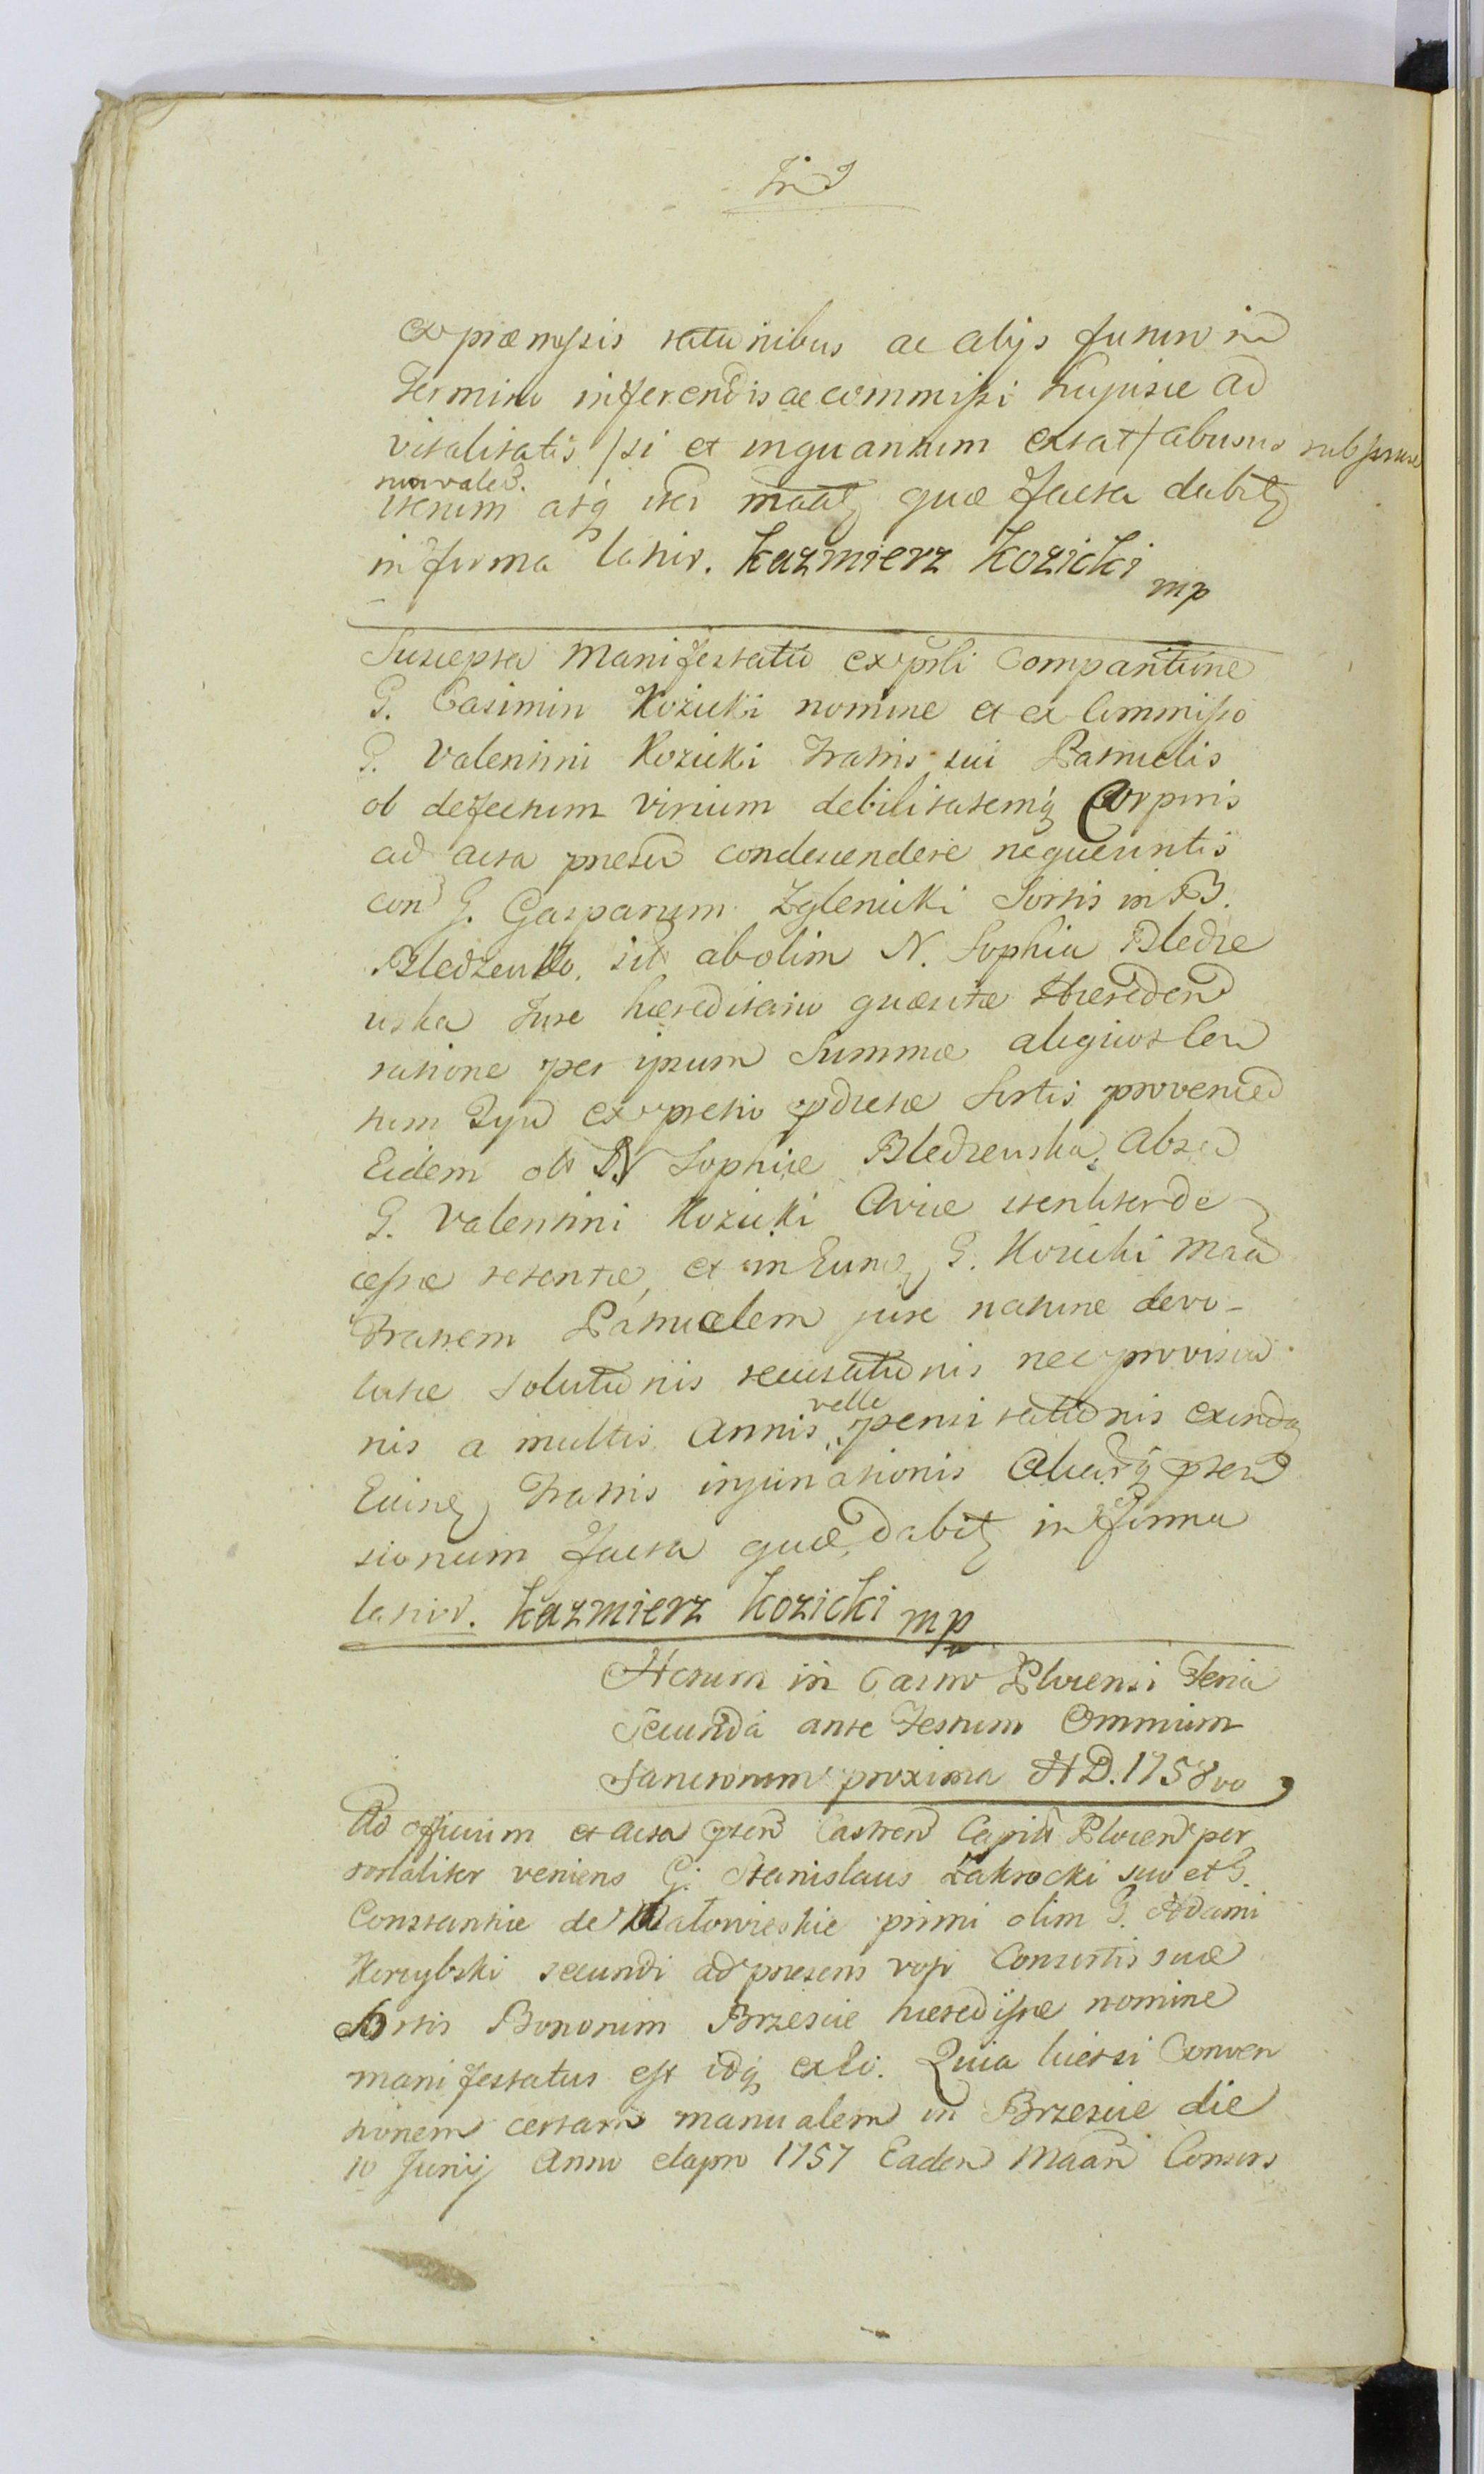 ex præmissis rationibus ac alijs fusius in
Termino inferendis ac commissi hujusce ad
vitalitatis /si et inquantum extat/ abusus subsecune
nonvaled.
iterum atq iter maatz quæ facta dabitz
in forma latior. Kazmierz Kozicki mp
Suscepta Manifestatio ex psli Comparitione
G. Casimiri Kozicki nomine et ex Commisso
G. Valentini Kozicki Fratris sui Patruelis
ob defectum virium debilitatemq Corporis
ad acta presen condescendere nequeuntis
con G. Gasparum Zglenicki Sortis in B.
Bledzewko sit ab olim N. Sophia Bledze
wska Jure hæreditario quæsitæ Hæreden
ratione per ipsum Summæ aliquot Cen
tum ex pretio pdictæ Sortis provenied
Eidem ol N Sophiæ Bledzewska
G. Valentini Kozicki Aviæ
cessæ retentæ, et in Eund G. Kozicki maā
Fratrem Patruelem jure naturæ devo-
lutæ Solutionis recusationis nec provisio
nis a multis Annis velle pensitationis exindq
Eiusd Fratris injuriationis Aliarq preten
sionum facta quæ dabitz in Forma
latiori. Kazmierz Kozicki mp
Actum in Castro Plocensi Feria
Secunda ante Festum Omnium
Sanctorum proxima A D. 1758vo
Ad officium et acta prsen Castren Capitu Plocen per
sonaliter veniens G. Stanislaus Zakrocki suo et G.
Constantiæ de Małowieskie primi olim G. Adami
Korzybski secundi ad presens voti Consortis suæ
Sortis Bonorum Brzescie hæredissæ nomine
manifestatus est idq exlo. Quia licetsi Conven
tionem certam manualem in Brzescie die
10 Junij Anno elapso 1757 Eaden Maān Consors